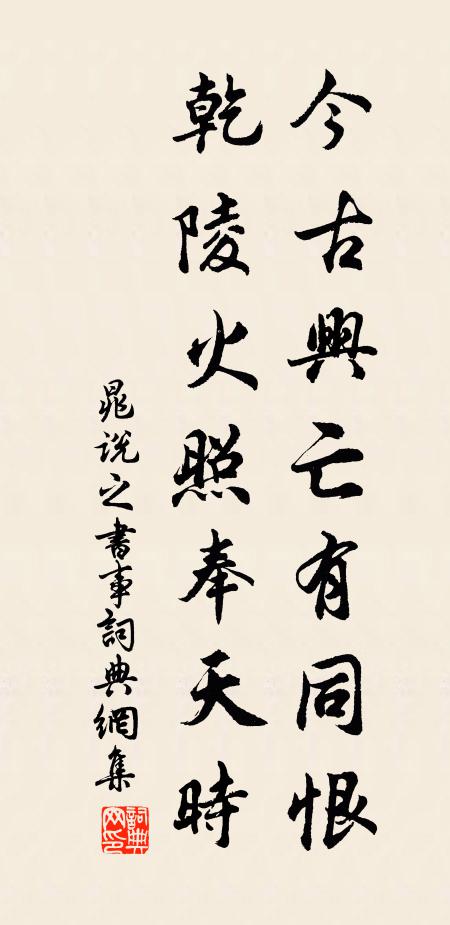 今古興亡有同恨
乾陵火照奉天時
晁說之書事詞典網集
詞典网印